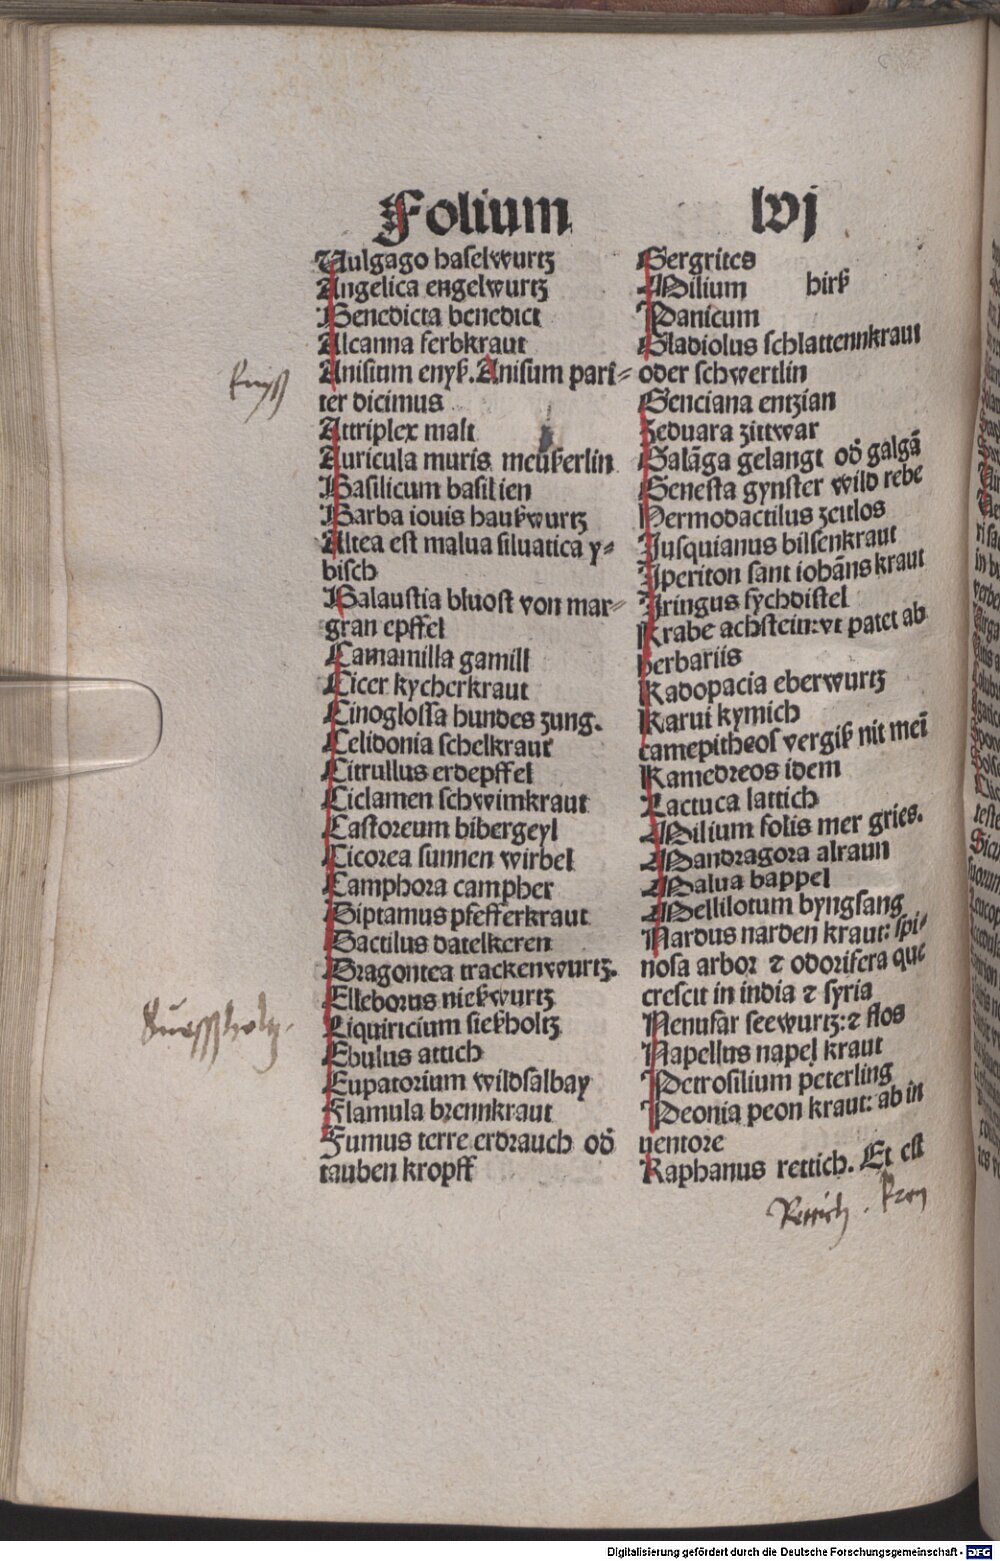 Folium lvj
Vulgago haselwurtz
Angelica engelwurtz
Benedicta benedict
Alcanna ferbkraut
Anisum enyß. Anisum pari⸗
ter dicimus
Attriplex malt
Auricula muris meüßerlin
Basilicum basilien
Barba iouis haußwurtz
Altea est malua siluatica y⸗
bisch
Balaustia bluost von mar⸗
gran epffel
Camamilla gamill
Cicer kycherkraut
Cinoglossa hundes zung.
Celidonia schelkraut
Citrullus erdepffel
Ciclamen schwimkraut
Castoreum bibergeyl
Cicorea sunnen wirbel
Camphora campher
Diptamus pfefferkraut
Dactilus datelkeren
Dragontea trackenwurtz.
Elleborus nießwurtz
Liquiricium sießholtz
Ebulus attich
Eupatorium wildsalbay
Flamula brennkraut
Fumus terre erdrauch od̄
tauben kropff
Gergrites
Milium hirß
Panicum
Gladiolus schlattennkraut
oder schwertlin
Genciana entzian
Zeduara zittwar
Galāga gelangt od̄ galgā
Genesta gynster wild rebe
Hermodactilus zeitlos
Jusquianus bilsenkraut
Iperiton sant iohāns kraut
Iringus sychdistel
Krabe achstein: vt patet ab
herbariis
Kadopacia eberwurtz
Karui kymich
camepitheos vergiß nit meī
Kamedreos idem
Lactuca lattich
Milium solis mer gries.
Mandragora alraun
Malua bappel
Mellilotum byngsang
Nardus narden kraut: spi⸗
nosa arbor ⁊ odorifera que
crescit in india ⁊ syria
Nenufar seewurtz: ⁊ flos
Napellus napel kraut
Petrosilium peterling
Peonia peon kraut: ab in
uentore
Raphanus rettich. Et est
Enyß
Suessholtz.
Rettich. kren
Digitalisierung gefördert durch die Deutsche Forschungsgemeinschaft - DFG